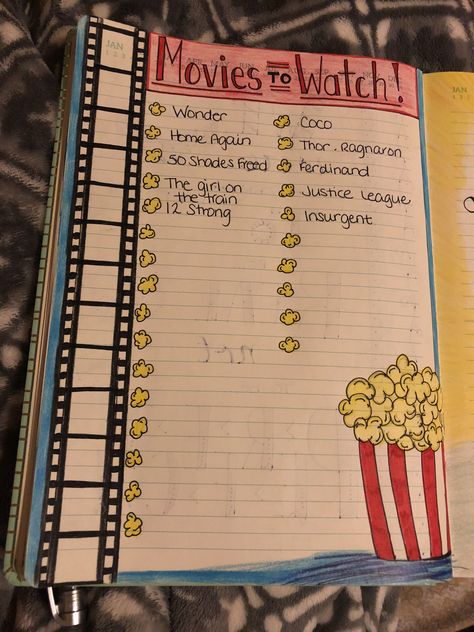 JAN
1 2 3
Movies to Watch!
Wonder
Home Again
50 Shades Freed
The girl on
the train
12 Strong
Coco
Thor. Ragnaron
Ferdinand
Justice League
Insurgent
JAN
1 2 3